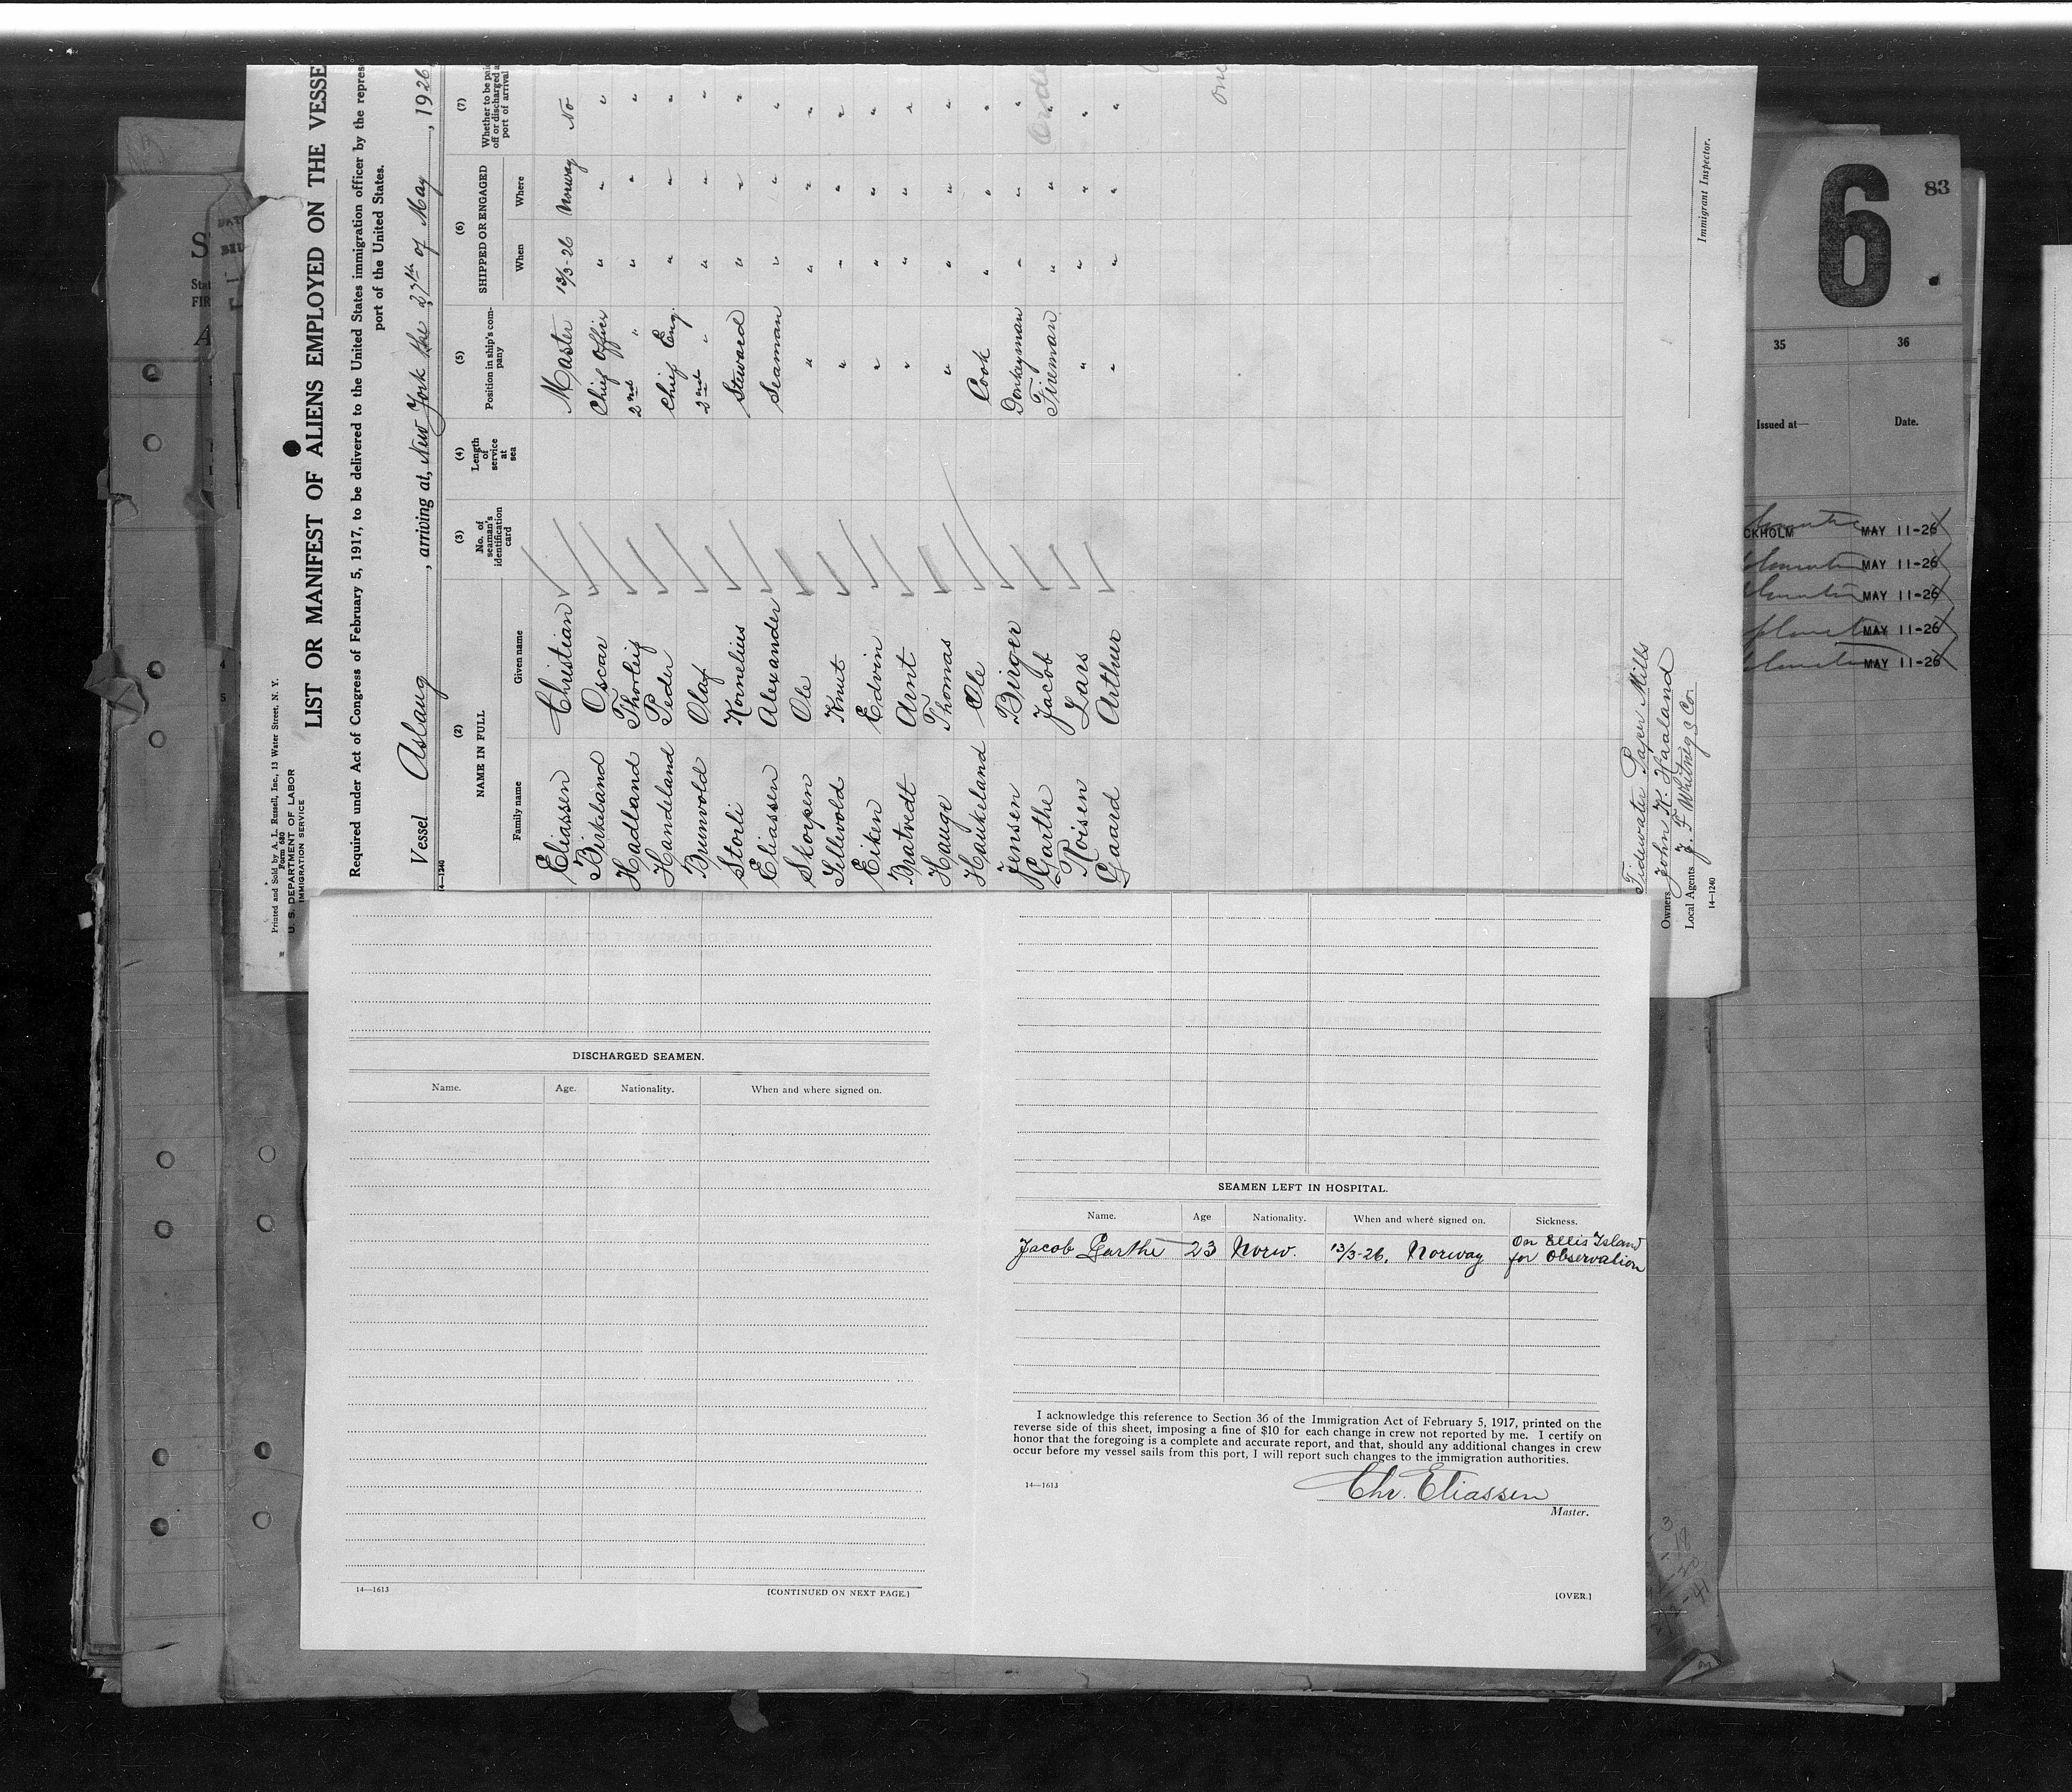 Printed and Sold by A. L. Russell, Inc., 13 Water Street, N. Y.
Form 680
U. S. DEPARTMENT OF LABOR
IMMIGRATION SERVICE
LIST OR MANIFEST OF ALIENS EMPLOYED ON THE VESSE
Required under Act of Congress of February 5, 1917, to be delivered to the United States immigration officer by the repres
port of the United States.
Vessel Aslaug, arriving at, New York the 27th of May, 1926
14—1240
(2) (3) (4) (5) (6) (7)
NAME IN FULL No. of seaman's identification card Length of service at sea Position in ship's company SHIPPED OR ENGAGED Whether to be paid off or discharged a port of arrival
Family name Given name When Where
Eliassen Christian Master 13/3-26 Norway No
Birkeland Oscar Chief Officer " " "
Hadland Thorleif 2nd " " " "
Handeland Peder Chief Eng. " " "
Brunvold Olaf 2nd " " " "
Storli Kornelius Steward " " "
Eliassen Alexander Seaman " " "
Skorpen Ole " " " "
Sellevold Knut " " " "
Eiken Edvin " " " "
Bratvedt Arnt " " " "
Hauge Thomas " " " "
Haukeland Ole Cook " " "
Jensen Birger Donkeyman " " "
Garthe Jacob Fireman " " "
Roisen Lars " " " "
Gaard Arthur " " " "
one
Tidewater Paper Mills
Owners John K. Haaland
Local Agents J. F. Whitney & Co.
14—1240
Immigrant Inspector.
6
83
35 36
Issued at— Date.
CKHOLM MAY 11-26
MAY 11-26
MAY 11-26
MAY 11-26
MAY 11-26
DISCHARGED SEAMEN.
Name. Age. Nationality. When and where signed on.
14—1613
[CONTINUED ON NEXT PAGE.]
SEAMEN LEFT IN HOSPITAL.
Name. Age Nationality. When and where signed on. Sickness.
Jacob Garthe 23 Norw. 13/3-26, Norway On Ellis Island
for Observation
I acknowledge this reference to Section 36 of the Immigration Act of February 5, 1917, printed on the
reverse side of this sheet, imposing a fine of $10 for each change in crew not reported by me. I certify on
honor that the foregoing is a complete and accurate report, and that, should any additional changes in crew
occur before my vessel sails from this port, I will report such changes to the immigration authorities.
14—1613
Chr. Eliassen
Master.
[OVER.]